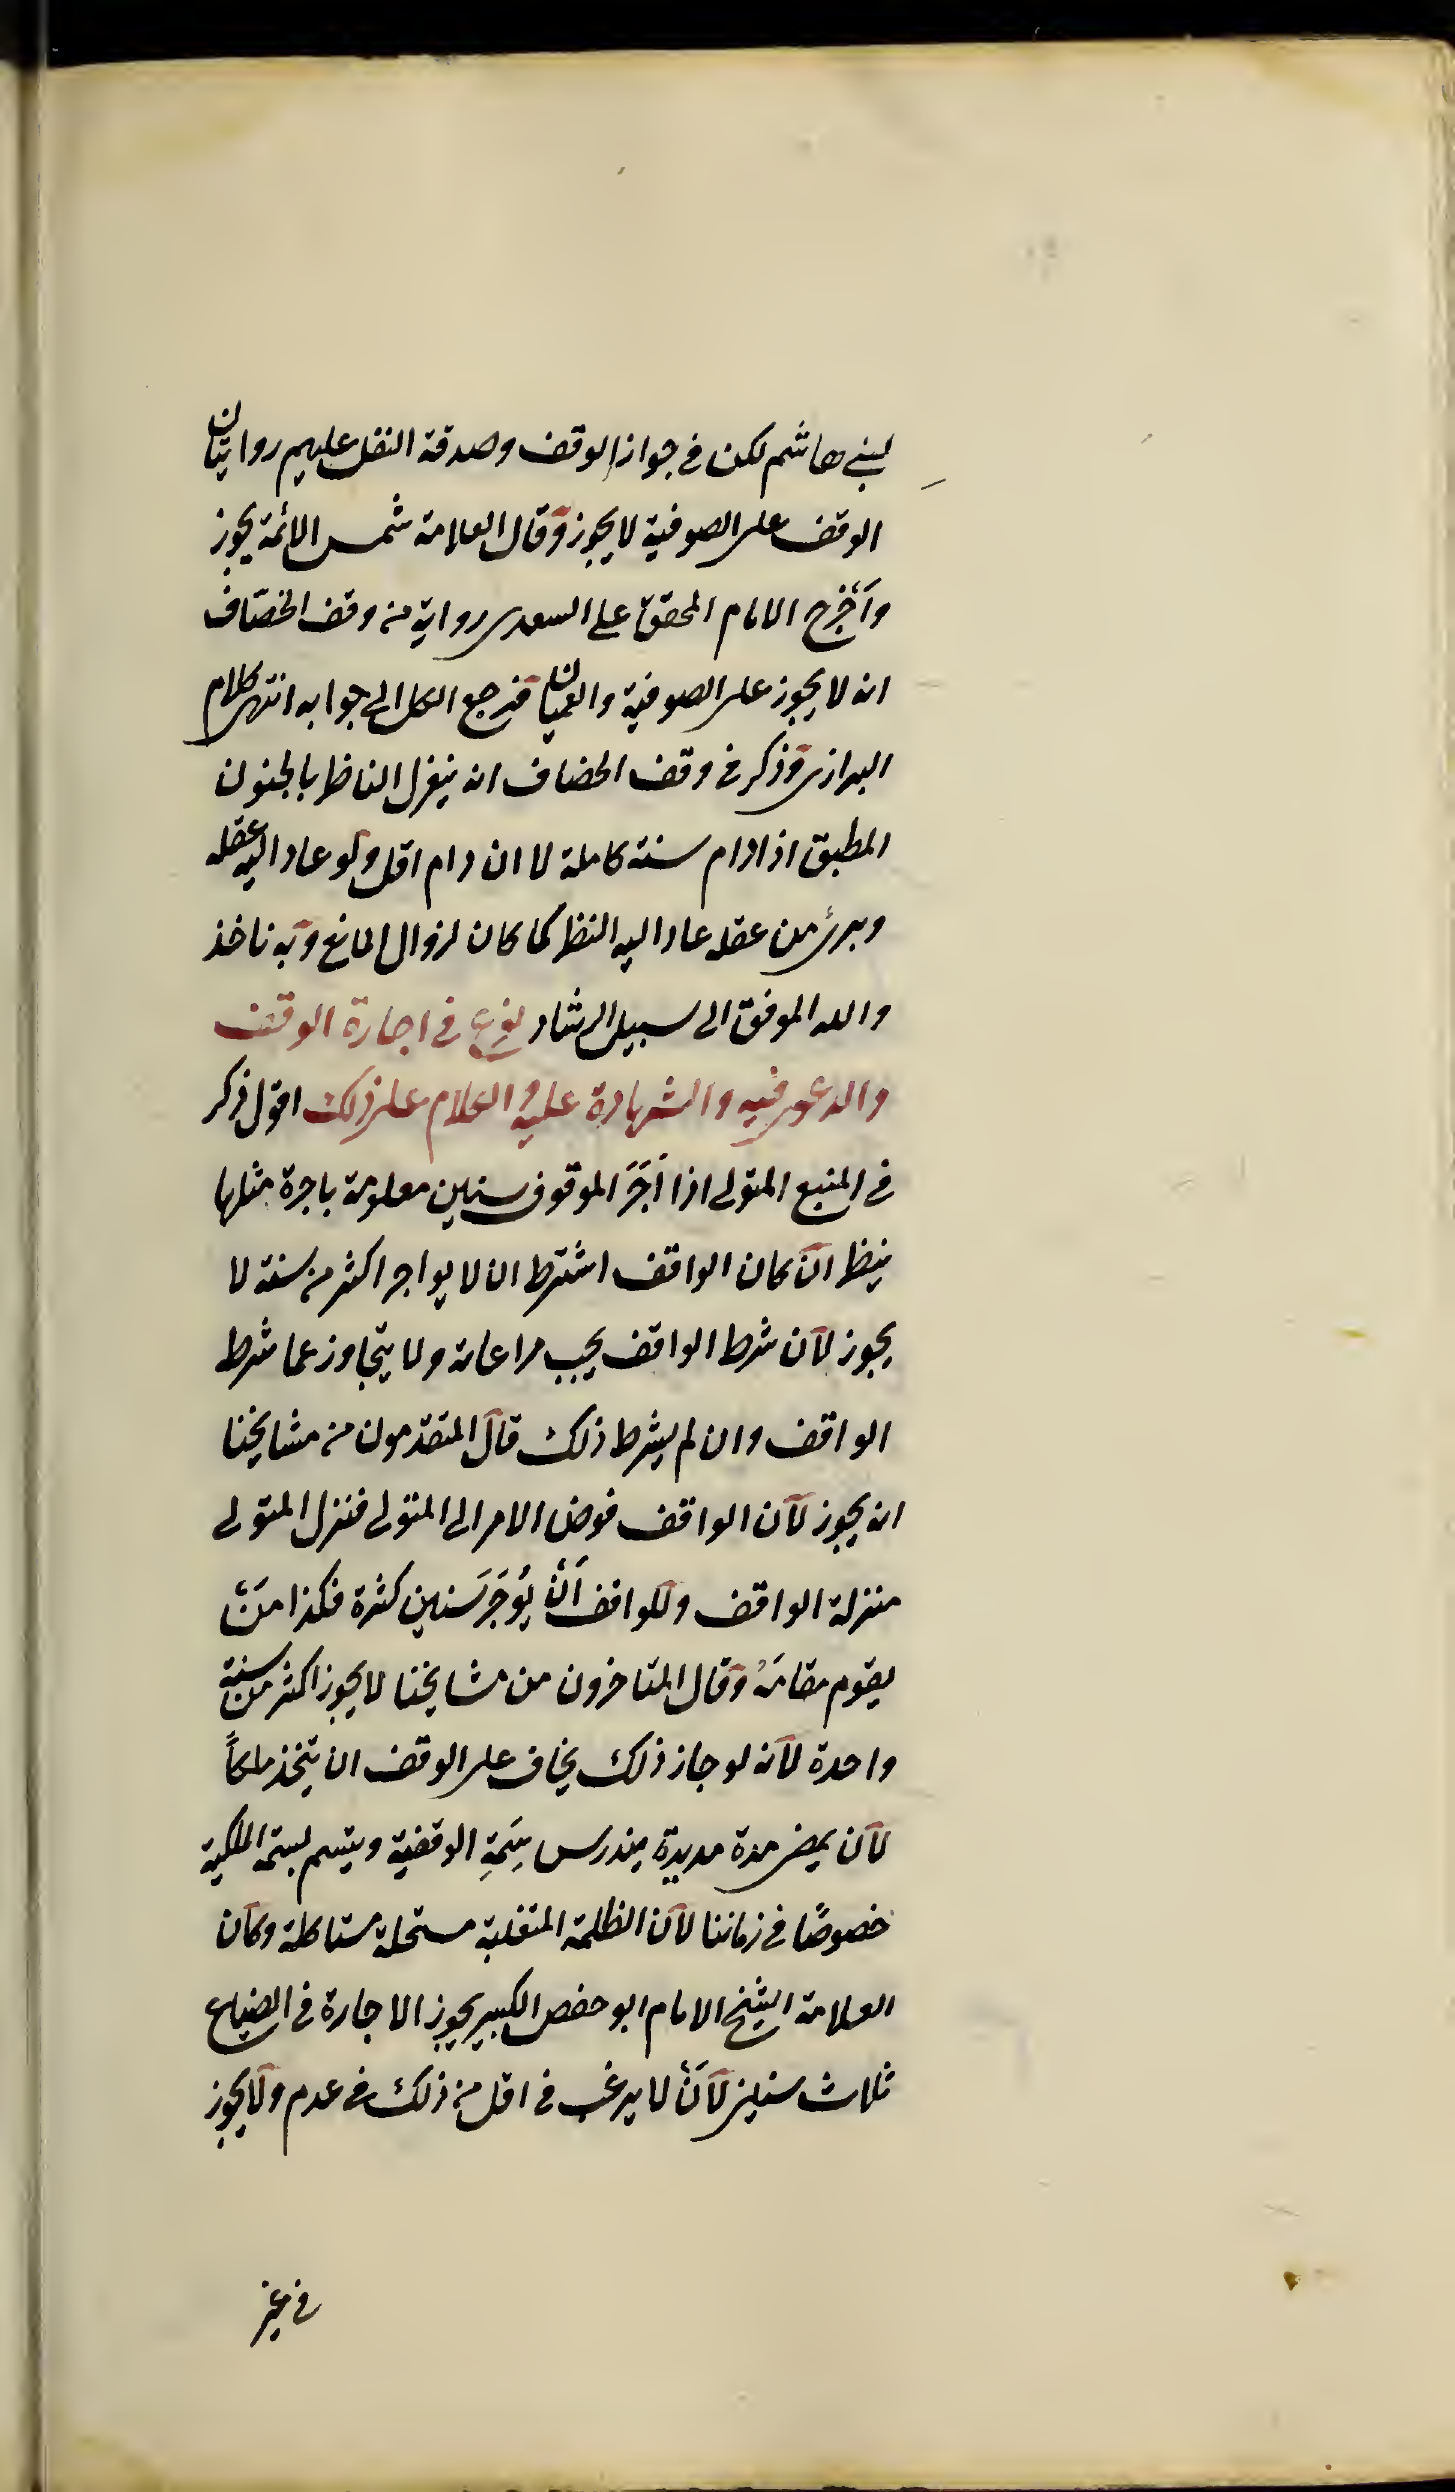 لبني هاشم لكن في جواز الوقف وصدقة النفل عليهم روايتان
الوقف على الصوفية لا يجوز وقال العلامة شمس الائمة يجوز
وأخرج الامام المحقق علي السعدى رواية من وقف الخصاف
انه لا يجوز على الصوفية والعميان فرجع الكل الى جوابه انتهى كلام
البزازى وذكر في وقف الخصاف انه ينعزل الناظر بالجنون
المطبق اذا دام سنة كاملة لا ان دام اقل ولو عاد اليه عقله
وبرئ من عقله عاد اليه النظر كما كان لزوال المانع وبه ناخذ
والله الموفق الى سبيل الرشاد نوع في اجارة الوقف
والدعوى فيه والشهادة عليه والكلام على ذلك اقول ذكر
في المنبع المتولى اذا أَجَرَ الموقوف سنين معلومة باجرة مثلها
ينظر ان كان الواقف اشترط ان لا يواجر اكثر من سنة لا
يجوز لان شرط الواقف يجب مراعاته ولا يتجاوز عما شرط
الواقف وان لم يشرط ذلك قال المتقدمون من مشايخنا
انه يجوز لان الواقف فوض الامر الى المتولى فنزل المتولى
منزلة الواقف وللواقف أنْ يُوَجَرَ سَنين كثرة فكذا مَنْ
يقوم مقامَهُ وقال المتاخرون من مشايخنا لا يجوز اكثر من سنة
واحدة لانه لو جاز ذلك يخاف على الوقف ان يتخذ ملكاً
لان بمضى مدة مديدة يندرس سِمَةِ الوقفية ويتسم بسمة الملكية
خصوصًا في زماننا لان الظلمة المتغلبة مستحلة مستاكلة وكان
العلامة الشيخ الامام ابو حفص الكبير يجوز الاجارة في الضياع
ثلاث سنين لانْ لا يرغب في اقل من ذلك في عدم ولا يجوز
في غير